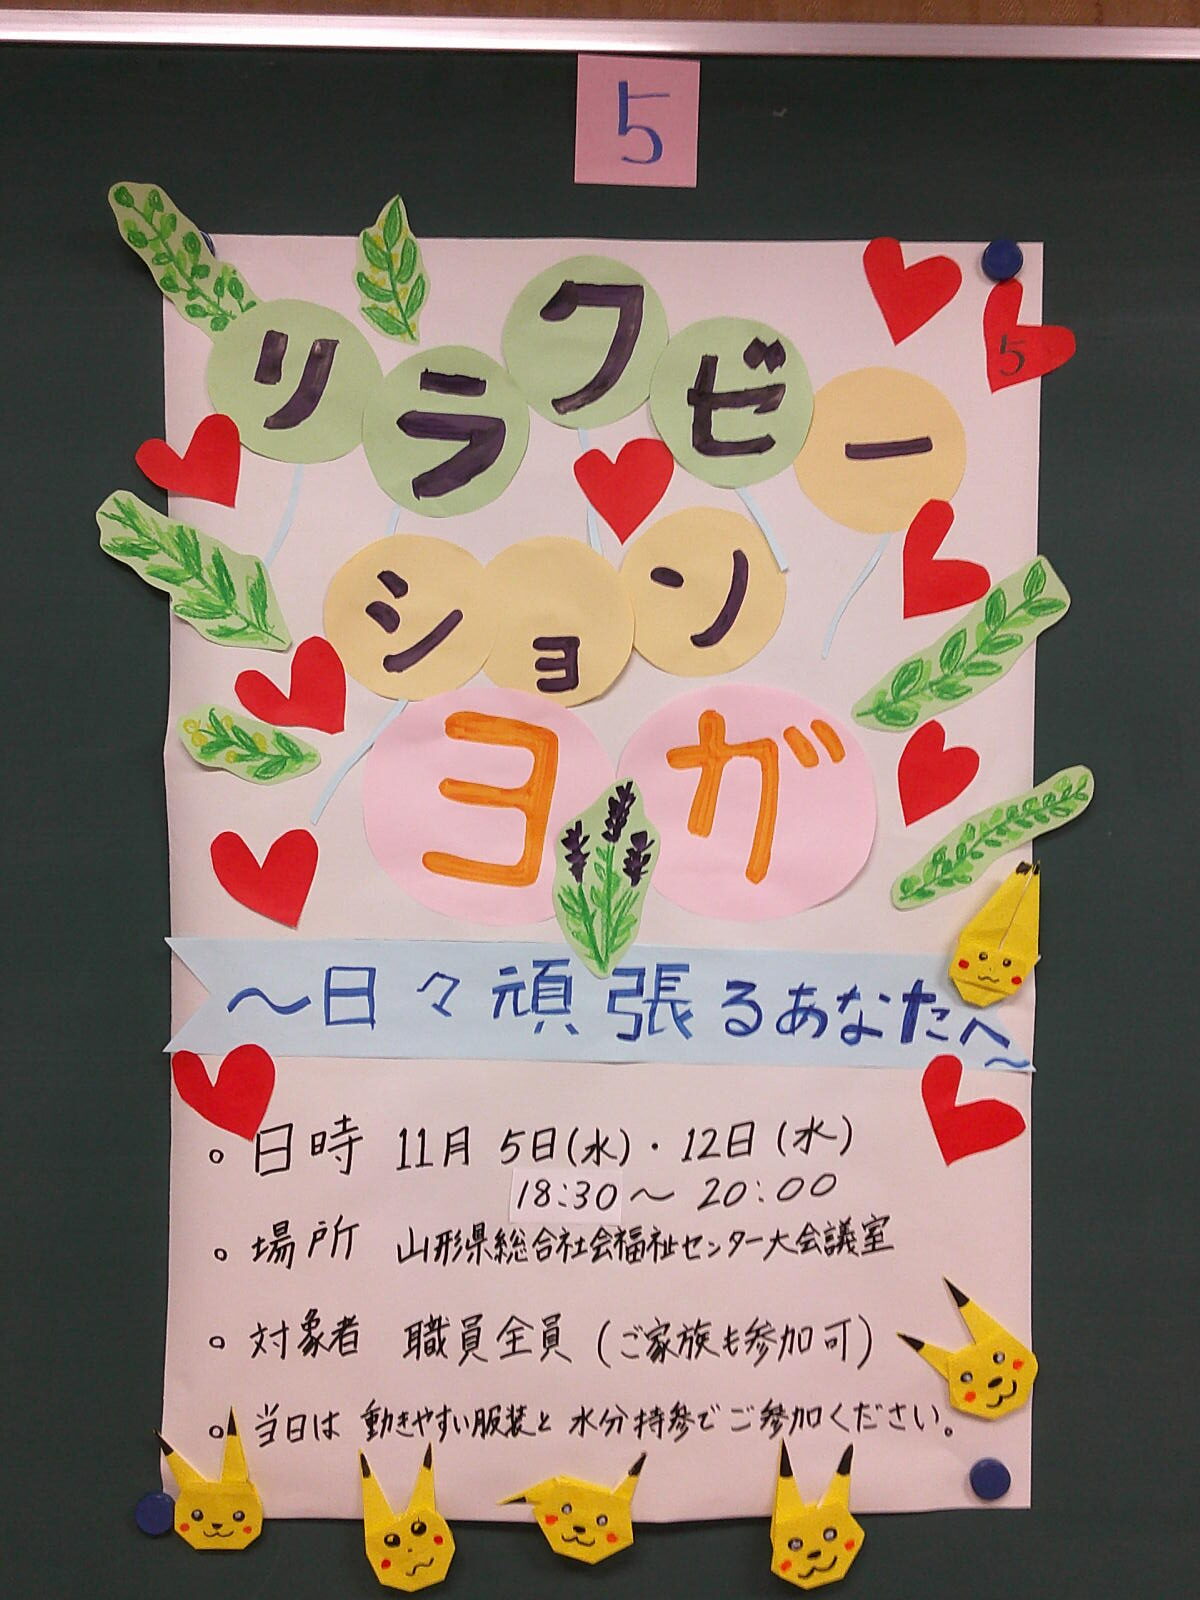 5
5
リラクビー
ション
ヨガ
～日々頑張るあなたへ～
。日時 11月 5日(水)・12日(水)
18:30～20:00
。場所 山形県総合社会福祉センター大会議室
。対象者 職員全員 (ご家族も参加可)
。当日は 動きやすい服装と 水分持参でご参加ください。